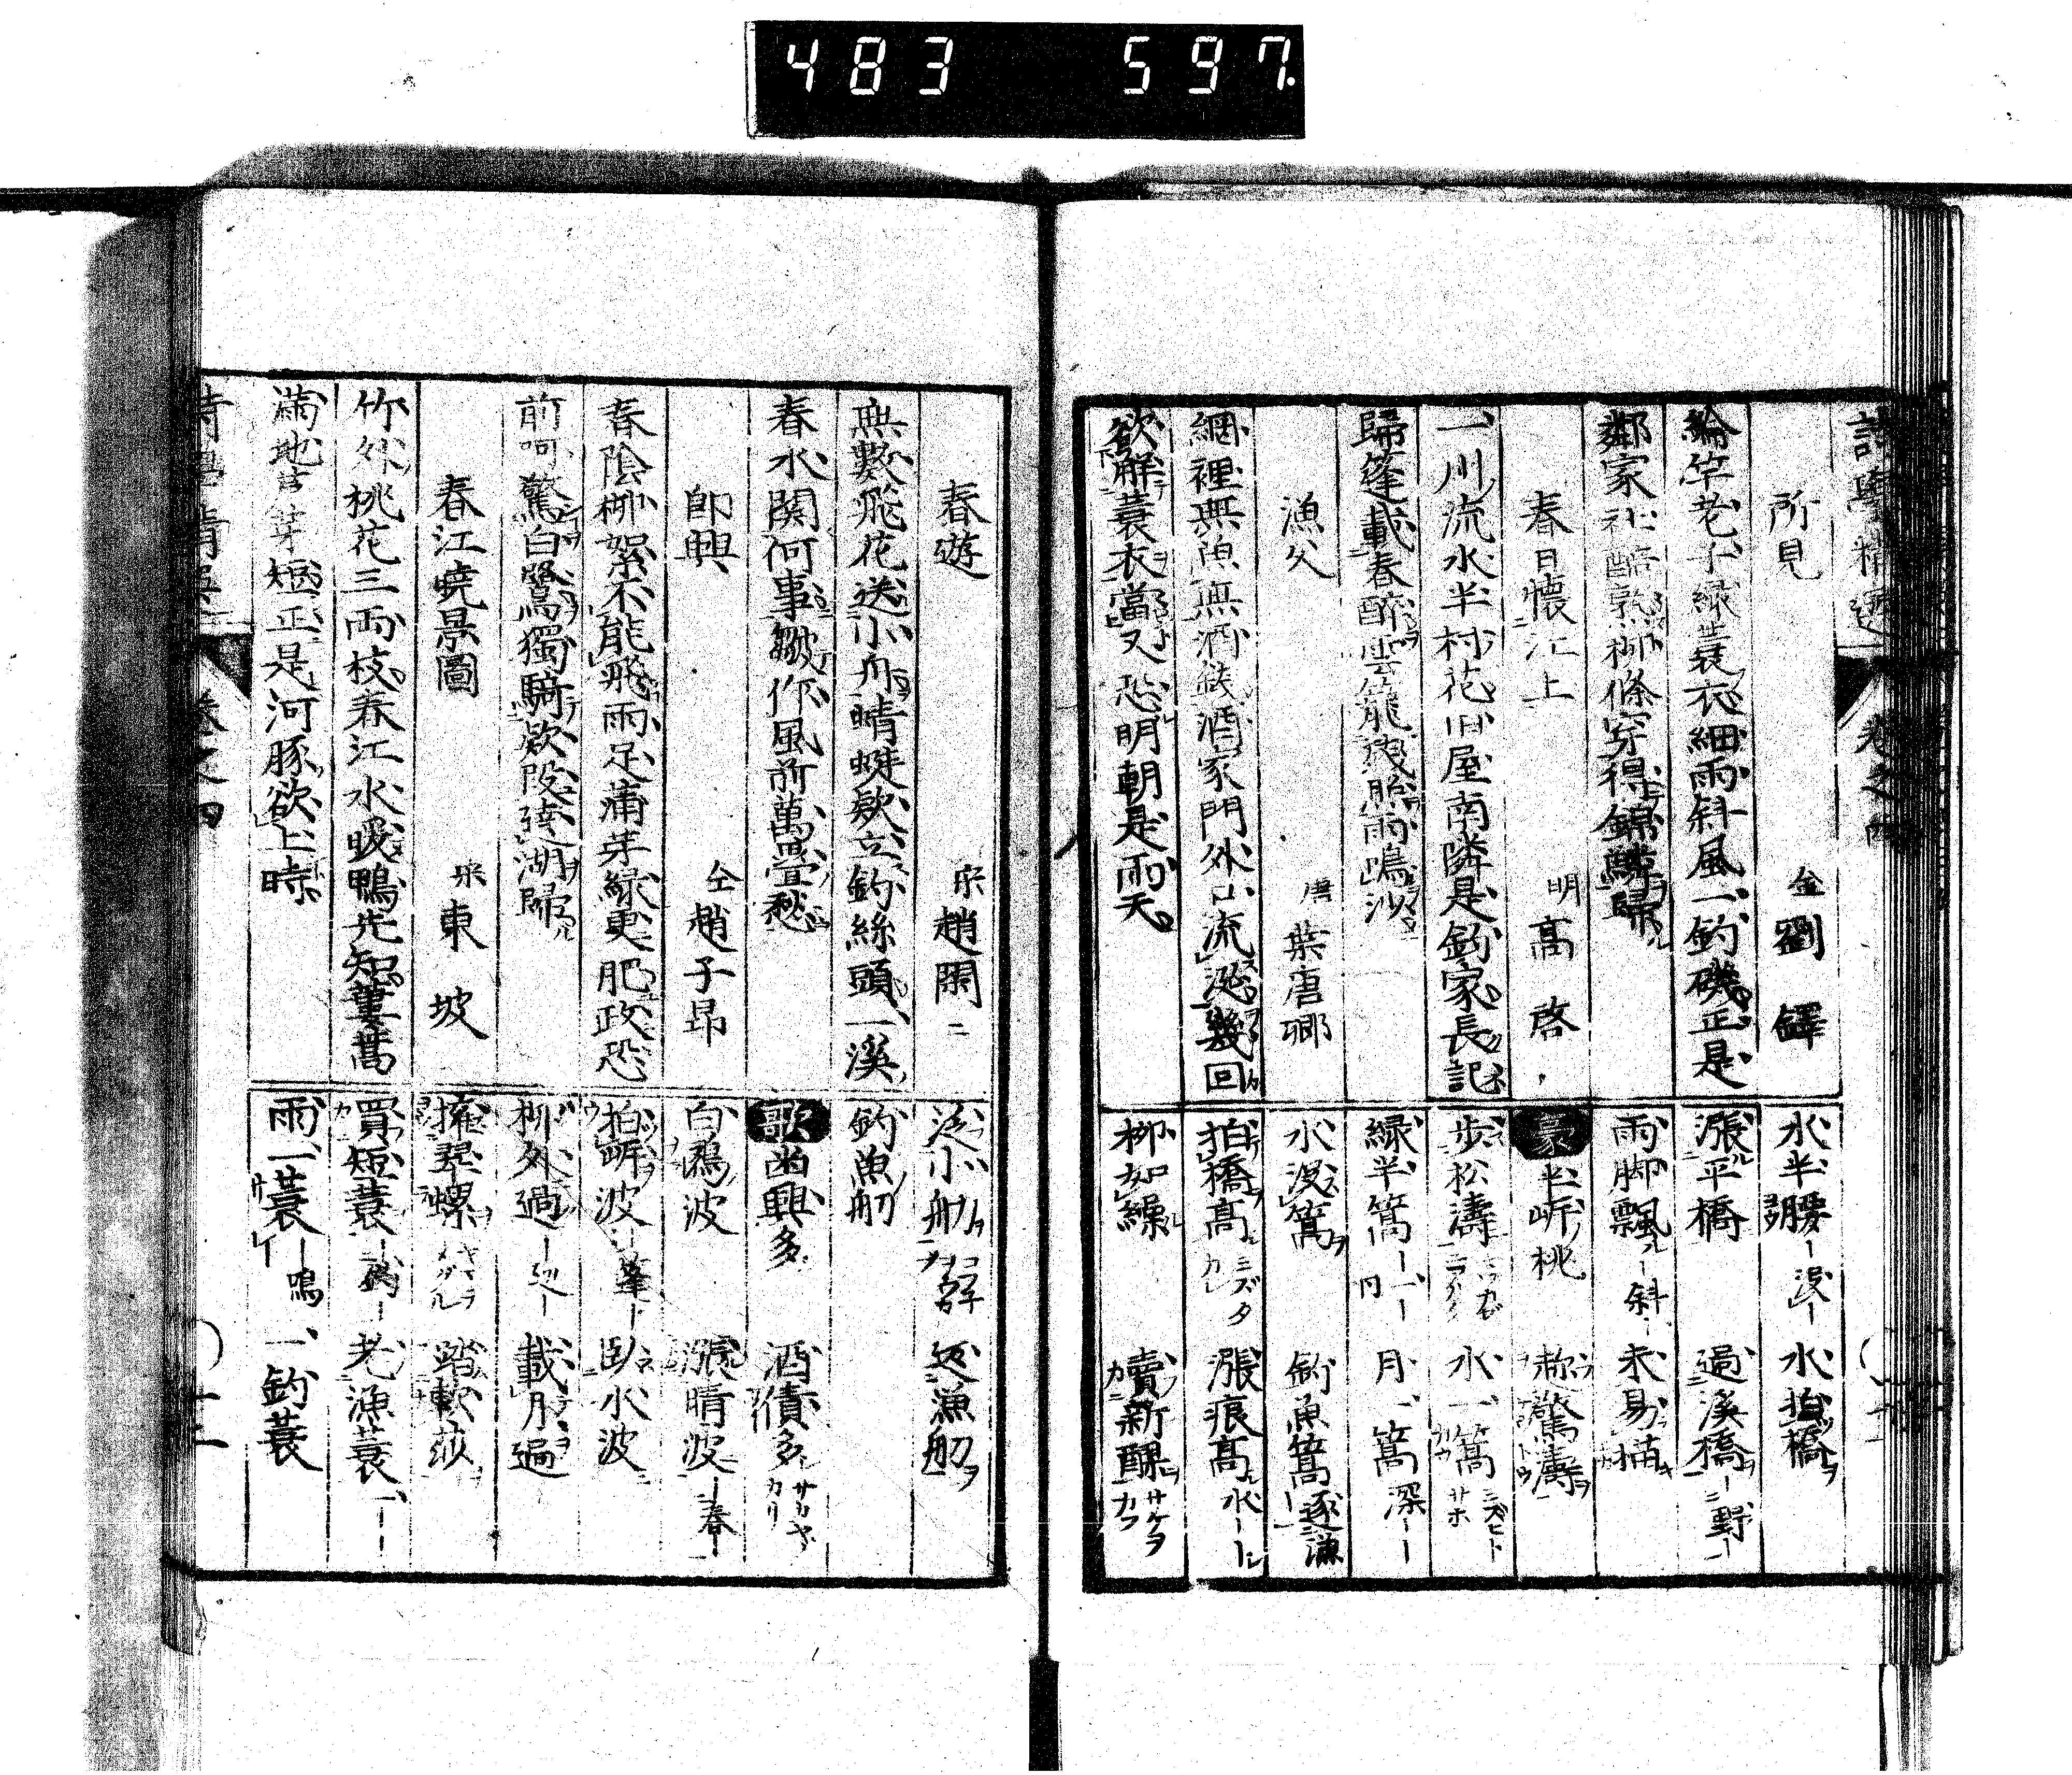 483 597.
所見 金 劉鐸
綸竿老子緑蓑衣細雨斜風一釣磯正是
鄰家社醅熟柳條穿得錦鱗歸
春日懷江上 明 高啓
一川流水半村花旧屋南隣是釣家長記
歸篷載春醉雲籠殘照雨鳴沙
漁父 唐 葉唐卿
網裡無魚無酒錢酒家門外口流涎幾回
欲解蓑衣當又恐明朝是雨天
水半腰 没 水拍橋
漲平橋 過溪橋 野
雨脚飄 斜 未易描
豪 半岸桃 驚濤
步松濤 水一篙
緑半篙 月一篙 深
水没篙 釣魚篙 逐漁
拍橋高 漲痕高 水
柳如繰 賣新醪
春遊 宋 趙閑二
無數飛花送小舟晴蜓欵立釣絲頭一溪
春水関何事皺作風前萬疊愁
即興 仝 趙子昂
春陰柳絮不能飛雨足蒲芽緑更肥政恐
前呵驚白鷺獨騎欵段遶湖歸
春江曉景圖 宋 東坡
竹外桃花三両枝春江水暖鴨先知蔞蒿
滿地芦芽短正是河豚欲上時
泛小舠 返漁舠
釣魚舠
歌 幽興多 酒債多
白鷗波 漲晴波 春
拍岸波 蓬 臥水波
柳外過 載月過
擁翠螺 踏軟莎
買短蓑 老漁蓑
雨一蓑 鳴 一釣蓑
卷之四